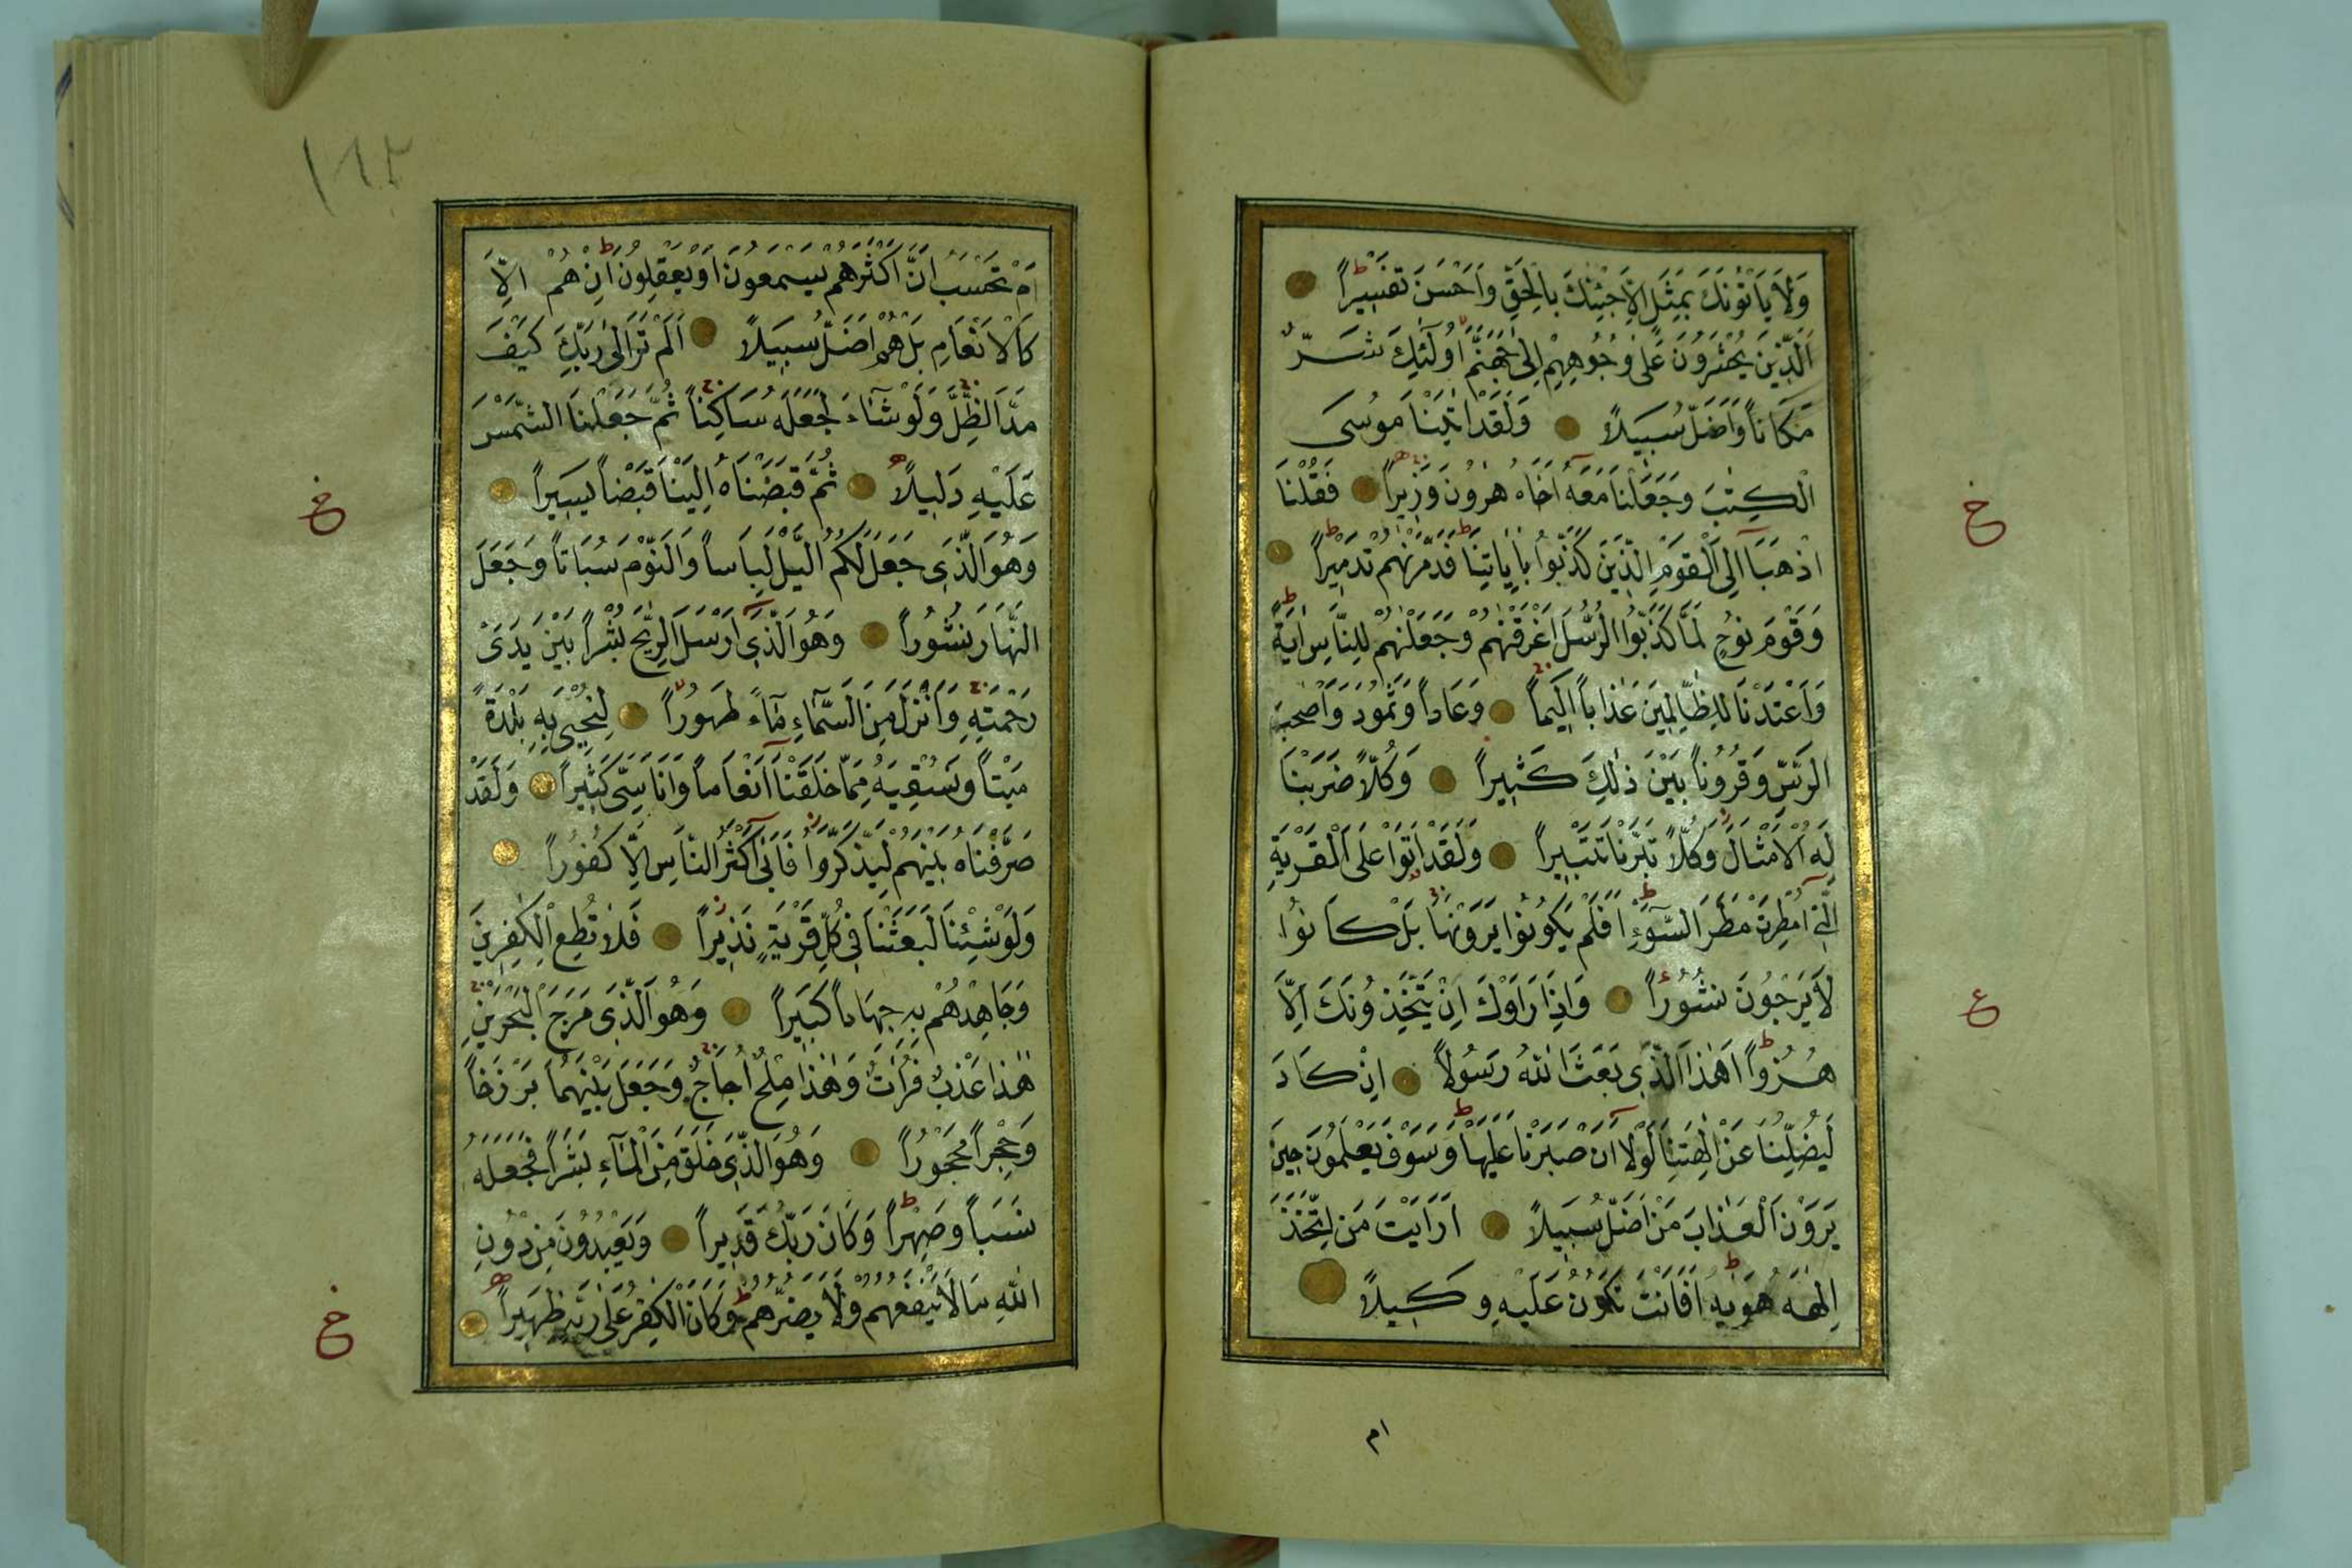 وَلَا يَأْتُونَكَ بِمَثَلٍ اِلَّا جِئْنٰكَ بِالْحَقِّ وَاَحْسَنَ تَفْسِيراً
اَلَّذِينَ يُحْشَرُونَ عَلٰى وُجُوهِهِمْ اِلٰى جَهَنَّمَ اُولٰئِكَ شَرٌّ
مَكَاناً وَاَضَلُّ سَبِيلاً وَلَقَدْ اٰتَيْنَا مُوسَى
الْكِتٰبَ وَجَعَلْنَا مَعَهُ اَخَاهُ هٰرُونَ وَزِيراً فَقُلْنَا
اذْهَبَا اِلَى الْقَوْمِ الَّذِينَ كَذَّبُوا بِاٰيَاتِنَا فَدَمَّرْنٰهُمْ تَدْمِيراً
وَقَوْمَ نُوحٍ لَمَّا كَذَّبُوا الرُّسُلَ اَغْرَقْنٰهُمْ وَجَعَلْنٰهُمْ لِلنَّاسِ اٰيَةً
وَاَعْتَدْنَا لِلظَّالِمِينَ عَذَاباً اَلِيماً وَعَاداً وَثَمُودَ وَاَصْحٰبَ
الرَّسِّ وَقُرُوناً بَيْنَ ذٰلِكَ كَثِيراً وَكُلّاً ضَرَبْنَا
لَهُ الْاَمْثَالَ وَكُلّاً تَبَّرْنَا تَتْبِيراً وَلَقَدْ اَتَوْا عَلَى الْقَرْيَةِ
الَّتِي اُمْطِرَتْ مَطَرَ السَّوْءِ اَفَلَمْ يَكُونُوا يَرَوْنَهَا بَلْ كَانُوا
لَا يَرْجُونَ نُشُوراً وَاِذَا رَاَوْكَ اِنْ يَتَّخِذُونَكَ اِلَّا
هُزُواً اَهٰذَا الَّذِي بَعَثَ اللّٰهُ رَسُولاً اِنْ كَادَ
لَيُضِلُّنَا عَنْ اٰلِهَتِنَا لَوْلَا اَنْ صَبَرْنَا عَلَيْهَا وَسَوْفَ يَعْلَمُونَ حِينَ
يَرَوْنَ الْعَذَابَ مَنْ اَضَلُّ سَبِيلاً اَرَاَيْتَ مَنِ اتَّخَذَ
اِلٰهَهُ هَوٰيهُ اَفَاَنْتَ تَكُونُ عَلَيْهِ وَكِيلاً
ام
خ
ع
١٨٢
اَمْ تَحْسَبُ اَنَّ اَكْثَرَهُمْ يَسْمَعُونَ اَوْ يَعْقِلُونَ اِنْ هُمْ اِلَّا
كَالْاَنْعَامِ بَلْ هُمْ اَضَلُّ سَبِيلاً اَلَمْ تَرَ اِلٰى رَبِّكَ كَيْفَ
مَدَّ الظِّلَّ وَلَوْ شَاءَ لَجَعَلَهُ سَاكِناً ثُمَّ جَعَلْنَا الشَّمْسَ
عَلَيْهِ دَلِيلاً ثُمَّ قَبَضْنَاهُ اِلَيْنَا قَبْضاً يَسِيراً
وَهُوَ الَّذِي جَعَلَ لَكُمُ الَّيْلَ لِبَاساً وَالنَّوْمَ سُبَاتاً وَجَعَلَ
النَّهَارَ نُشُوراً وَهُوَ الَّذِي اَرْسَلَ الرِّيٰحَ بُشْراً بَيْنَ يَدَىْ
رَحْمَتِهِ وَاَنْزَلَ مِنَ السَّمَاءِ مَاءً طَهُوراً لِنُحْيِيَ بِهِ بَلْدَةً
مَيْتاً وَنُسْقِيَهُ مِمَّا خَلَقْنَا اَنْعَاماً وَاَنَاسِيَّ كَثِيراً وَلَقَدْ
صَرَّفْنَاهُ بَيْنَهُمْ لِيَذَّكَّرُوا فَاَبٰى اَكْثَرُ النَّاسِ اِلَّا كُفُوراً
وَلَوْ شِئْنَا لَبَعَثْنَا فِي كُلِّ قَرْيَةٍ نَذِيراً فَلَا تُطِعِ الْكٰفِرِينَ
وَجَاهِدْهُمْ بِهِ جِهَاداً كَبِيراً وَهُوَ الَّذِي مَرَجَ الْبَحْرَيْنِ
هٰذَا عَذْبٌ فُرَاتٌ وَهٰذَا مِلْحٌ اُجَاجٌ وَجَعَلَ بَيْنَهُمَا بَرْزَخاً
وَحِجْراً مَحْجُوراً وَهُوَ الَّذِي خَلَقَ مِنَ الْمَاءِ بَشَراً فَجَعَلَهُ
نَسَباً وَصِهْراً وَكَانَ رَبُّكَ قَدِيراً وَيَعْبُدُونَ مِنْ دُونِ
اللّٰهِ مَا لَا يَنْفَعُهُمْ وَلَا يَضُرُّهُمْ وَكَانَ الْكَافِرُ عَلٰى رَبِّهِ ظَهِيراً
خ
خ